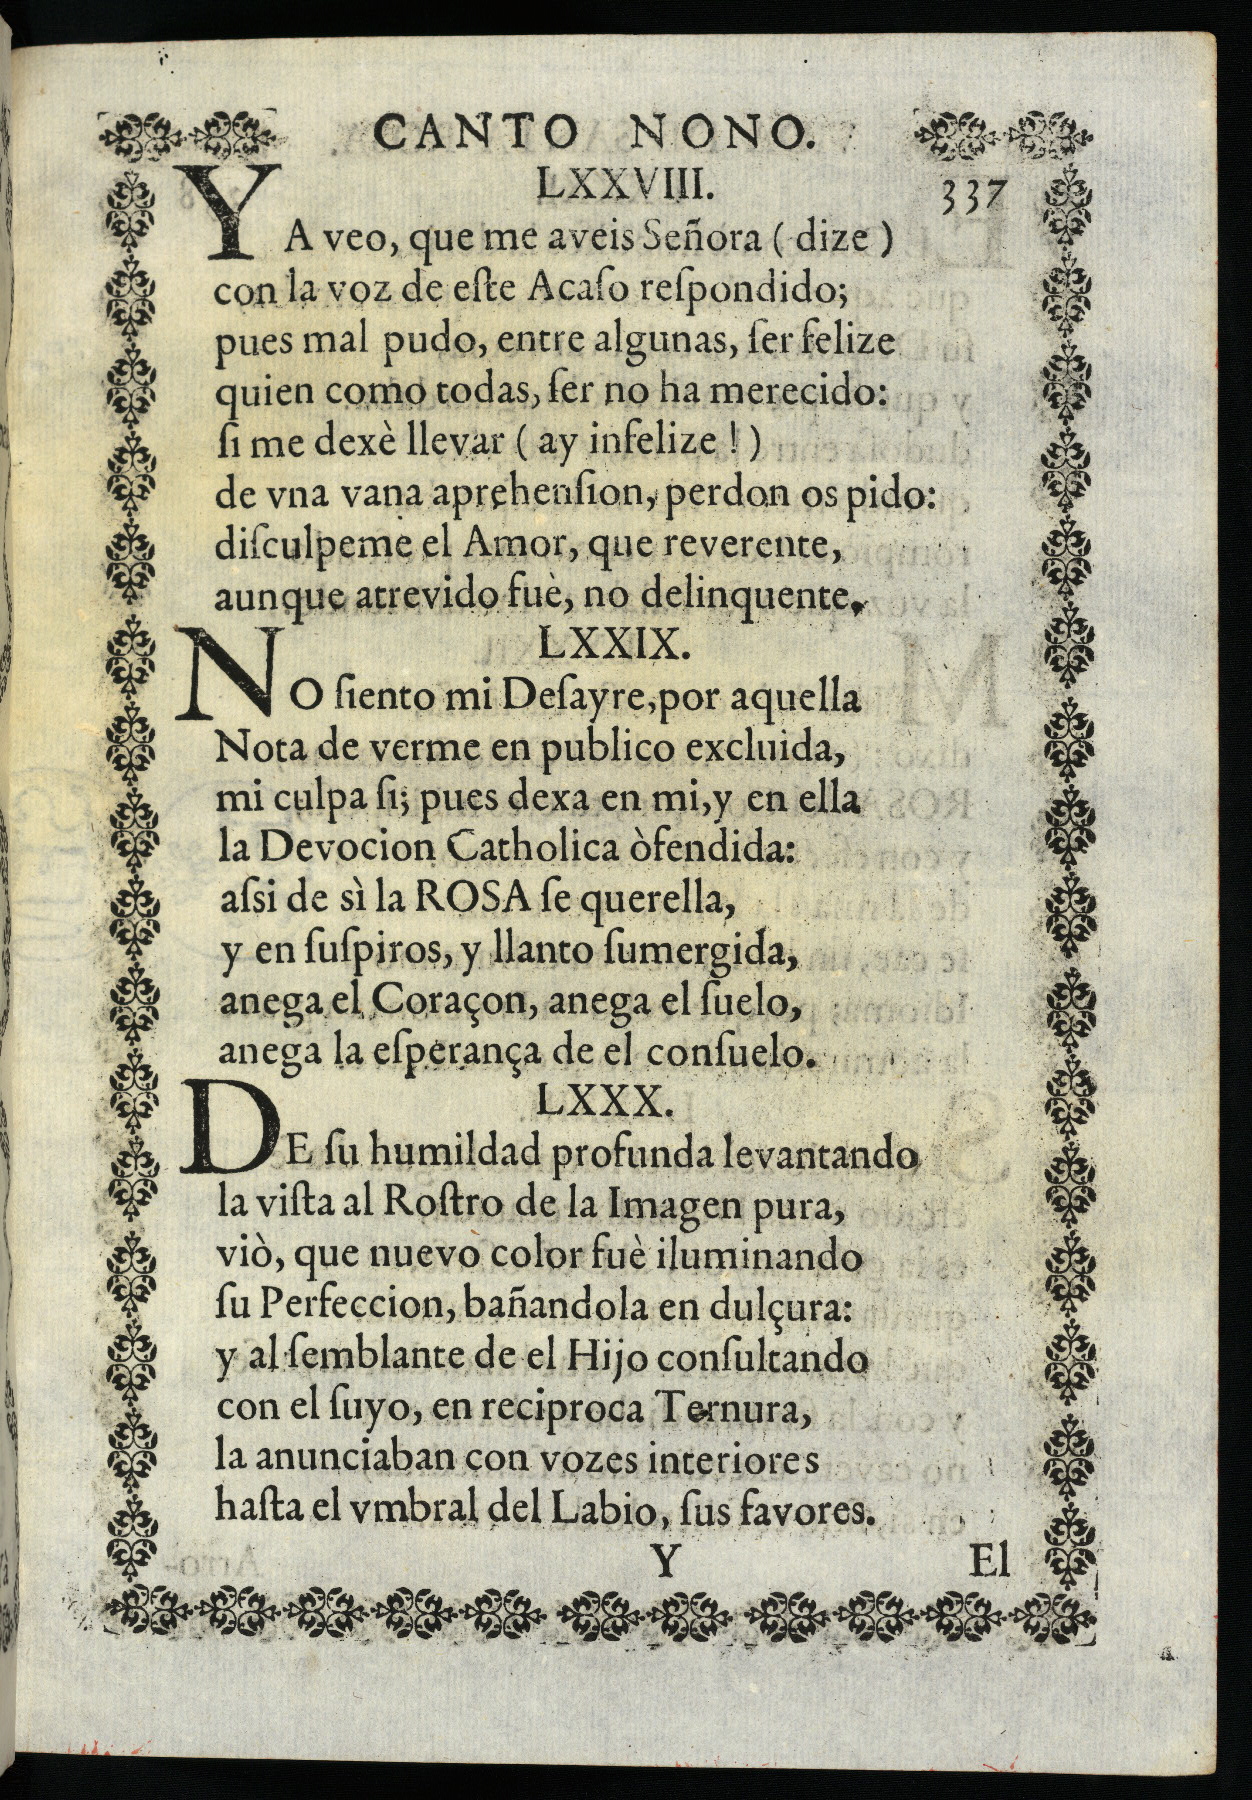 CANTO NONO.
LXXVIII.
337
YA veo, que me aveis Señora ( dize )
con la voz de eſte Acaſo reſpondido;
pues mal pudo, entre algunas, ſer felize
quien como todas, ſer no ha merecido:
ſi me dexè llevar ( ay infelize ! )
de vna vana aprehenſion, perdon os pido:
diſculpeme el Amor, que reverente,
aunque atrevido fuè, no delinquente.
LXXIX.
NO ſiento mi Deſayre, por aquella
Nota de verme en publico excluida,
mi culpa ſi; pues dexa en mi, y en ella
la Devocion Catholica òfendida:
aſsi de sì la ROSA ſe querella,
y en ſuſpiros, y llanto ſumergida,
anega el Coraçon, anega el ſuelo,
anega la eſperança de el conſuelo.
LXXX.
DE ſu humildad profunda levantando
la viſta al Roſtro de la Imagen pura,
viò, que nuevo color fuè iluminando
ſu Perfeccion, bañandola en dulçura:
y al ſemblante de el Hijo conſultando
con el ſuyo, en reciproca Ternura,
la anunciaban con vozes interiores
haſta el vmbral del Labio, ſus favores.
Y El